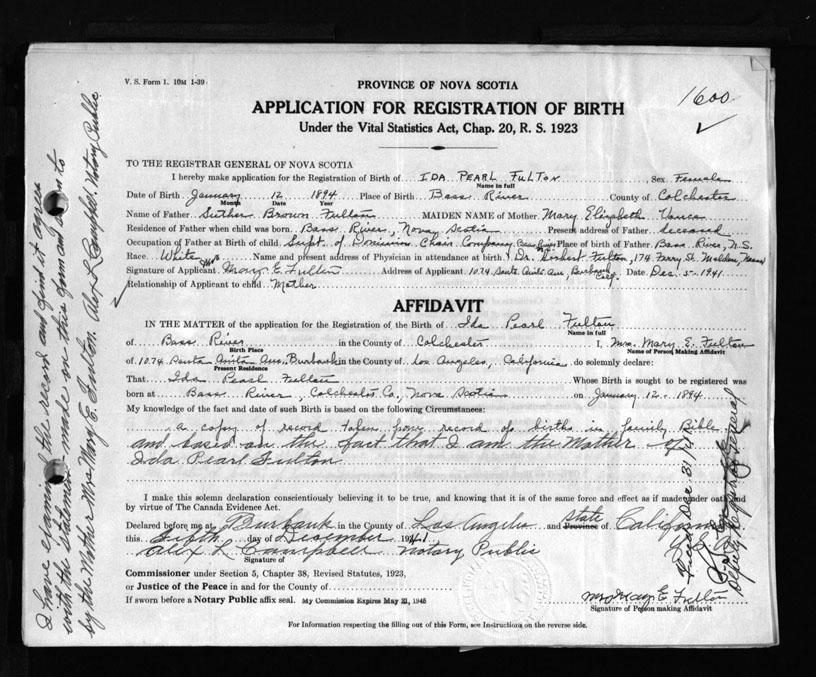 V. S. Form 1. 10M 1-39.
PROVINCE OF NOVA SCOTIA
APPLICATION FOR REGISTRATION OF BIRTH
Under the Vital Statistics Act, Chap. 20, R. S. 1923
1600
TO THE REGISTRAR GENERAL OF NOVA SCOTIA
I hereby make application for the Registration of Birth of IDA PEARL FULTON Sex Female
Name in full
Date of Birth January 12 1894 Place of Birth Bass River County of Colchester
Month Date Year
Name of Father Luther Brown Fulton MAIDEN NAME of Mother Mary Elizabeth Vance
Residence of Father when child was born. Bass River, Nova Scotia Present address of Father deceased
Occupation of Father at Birth of child. Supt. of Dominion Chair Company Bass River Place of birth of Father Bass River, N.S.
Race. White Name and present address of Physician in attendance at birth. Dr. Herbert Fulton, 174 Ferry St. Malden, Mass
Signature of Applicant Mary E. Fulton Address of Applicant 1074 Santa Anita Ave, Burbank Calif. Date Dec. 5- 1941.
Relationship of Applicant to child. Mother
AFFIDAVIT
IN THE MATTER of the application for the Registration of the Birth of Ida Pearl Fulton
Name in full
of Bass River in the County of Colchester I, Mrs. Mary E. Fulton
Birth Place Name of Person Making Affidavit
of 1074 Santa Anita Ave. Burbank in the County of Los Angeles, California do solemnly declare:
Present Residence
That Ida Pearl Fulton Whose Birth is sought to be registered was
born at Bass River, Colchester Co, Nova Scotia on January 12. 1894.
My knowledge of the fact and date of such Birth is based on the following Circumstances:
a copy of record taken from record of births in family Bible.
and based on the fact that I am the Mother of
Ida Pearl Fulton
I make this solemn declaration conscientiously believing it to be true, and knowing that it is of the same force and effect as if made under oath and
by virtue of The Canada Evidence Act.
Declared before me at Burbank in the County of Los Angeles and State Province of California
this fifth day of December 1941.
Alex L Campbell Notary Public
Signature of
Commissioner under Section 5, Chapter 38, Revised Statutes, 1923,
or Justice of the Peace in and for the County of
If sworn before a Notary Public affix seal. My Commission Expires May 21, 1945
Mrs Mary E Fulton
Signature of Person making Affidavit
For Information respecting the filling out of this Form, see Instructions on the reverse side.
I have examined the record and find it agrees
with the statement made in this form and sworn to
by the Mother Mrs Mary E. Fulton. Alex L Campbell. Notary Public
Filed Dec. 31/41
Deputy Registrar General